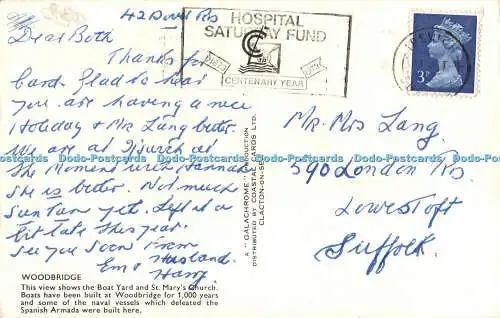 42 Dover Rd
Dear Both
Thanks for
Card. Glad to hear
you are having a nice
Holiday & Mr Lang better.
We are at Ipswich at
the Moment with Hannah
She is better. Not much
Sun Tan yet. Left it a
bit late this year.
See you soon From
Em & Husband
Harry
WOODBRIDGE
This view shows the Boat Yard and St. Mary's Church.
Boats have been built at Woodbridge for 1,000 years
and some of the naval vessels which defeated the
Spanish Armada were built here.
A "GALACHROME" PRODUCTION
DISTRIBUTED BY COASTAL CARDS LTD.
CLACTON-ON-SEA
HOSPITAL
SATURDAY FUND
1873
CENTENARY YEAR
3P
Mr. Mrs Lang.
590 London Rd
Lowestoft
Suffolk.
Dodo-Postcards Dodo-Postcards Dodo-Postcards Dodo-Postcards Dodo-Postcards